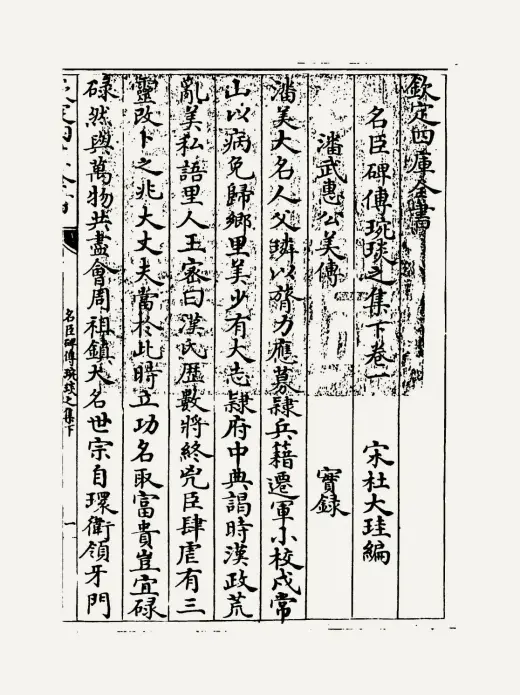 欽定四庫全書
名臣碑傳琬琰之集下卷一
宋杜大珪編
潘武惠公美傳
實録
潘美大名人父璘以膂力應募隸兵籍遷軍小校戍常
山以病免歸鄉里美少有大志隷府中典謁時漢政荒
亂美私語里人王宻曰漢氏歴數將終兇臣肆虐有三
靈改卜之兆大丈夫當於此時立功名取富貴豈宜碌
碌然與萬物共盡會周祖鎮大名世宗自環衛領牙門
名臣碑傳琬琰之集下
一